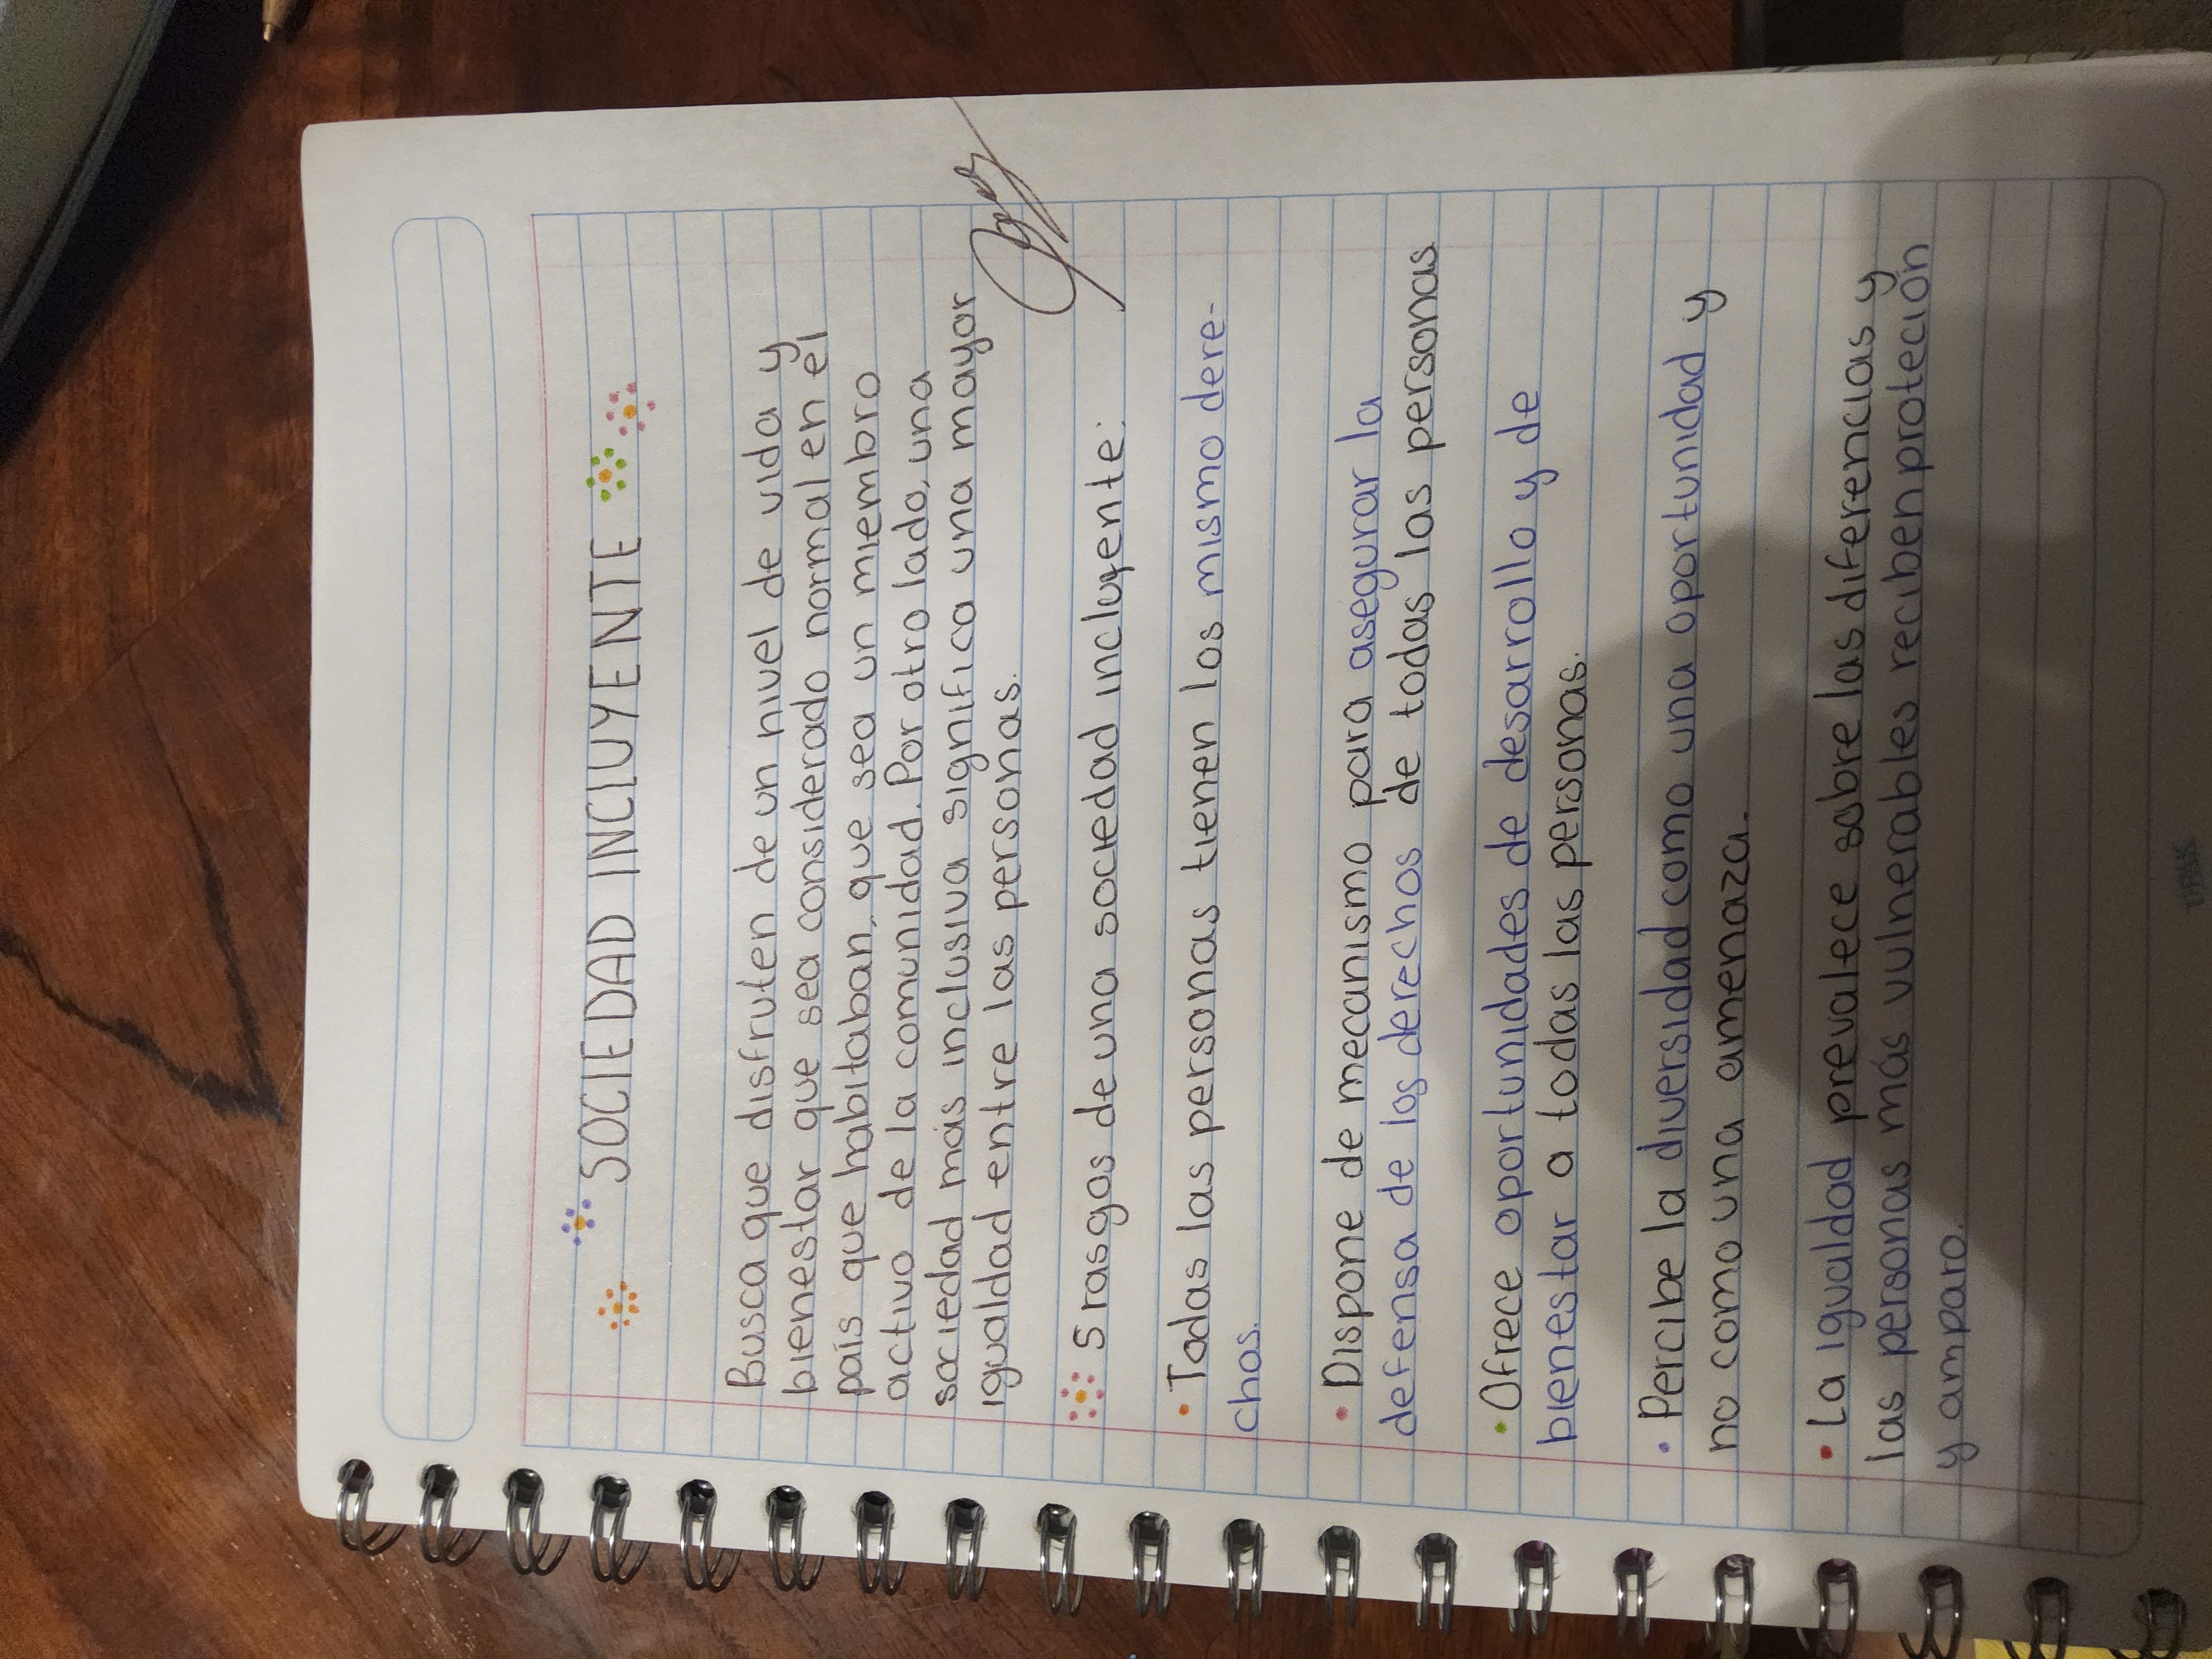 SOCIEDAD INCLUYENTE
Busca que disfruten de un nivel de vida y
bienestar que sea considerado normal en el
país que habitaban, que sea un miembro
activo de la comunidad. Por otro lado, una
sociedad más inclusiva significa una mayor
igualdad entre las personas.
5 rasgos de una sociedad incluyente:
• Todas las personas tienen los mismo dere-
chos.
• Dispone de mecanismo para asegurar la
defensa de los derechos de todas las personas
• Ofrece oportunidades de desarrollo y de
bienestar a todas las personas.
• Percibe la diversidad como una oportunidad y
no como una amenaza.
• La igualdad prevalece sobre las diferencias y
las personas más vulnerables reciben proteción
y amparo.